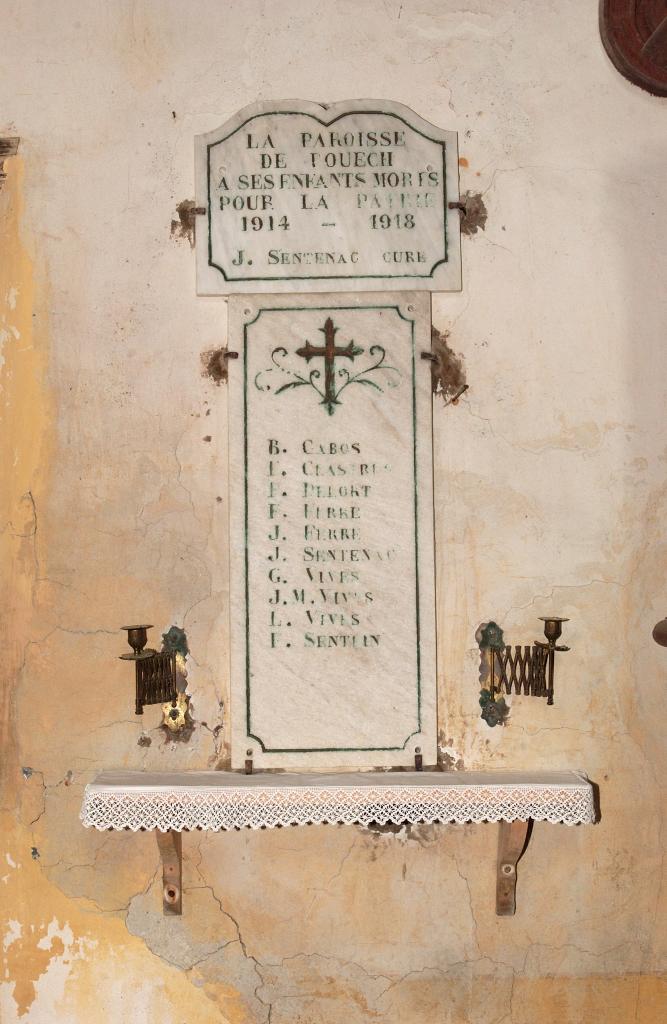 LA PAROISSE
DE POUECH
A SES ENFANTS MORTS
POUR LA PATRIE
1914 – 1918
J. SENTENAC CURE
B. CABOS
CLASTRES
DELORT
F. FERRE
J. FERRE
J. SENTENAC
G. VIVES
J.M. VIVES
L. VIVES
SENTEIN